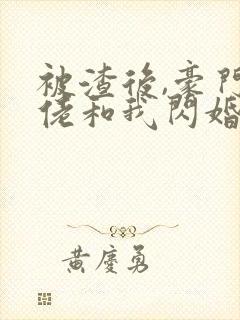 被渣後,豪門
佬和我閃婚
黃慶勇